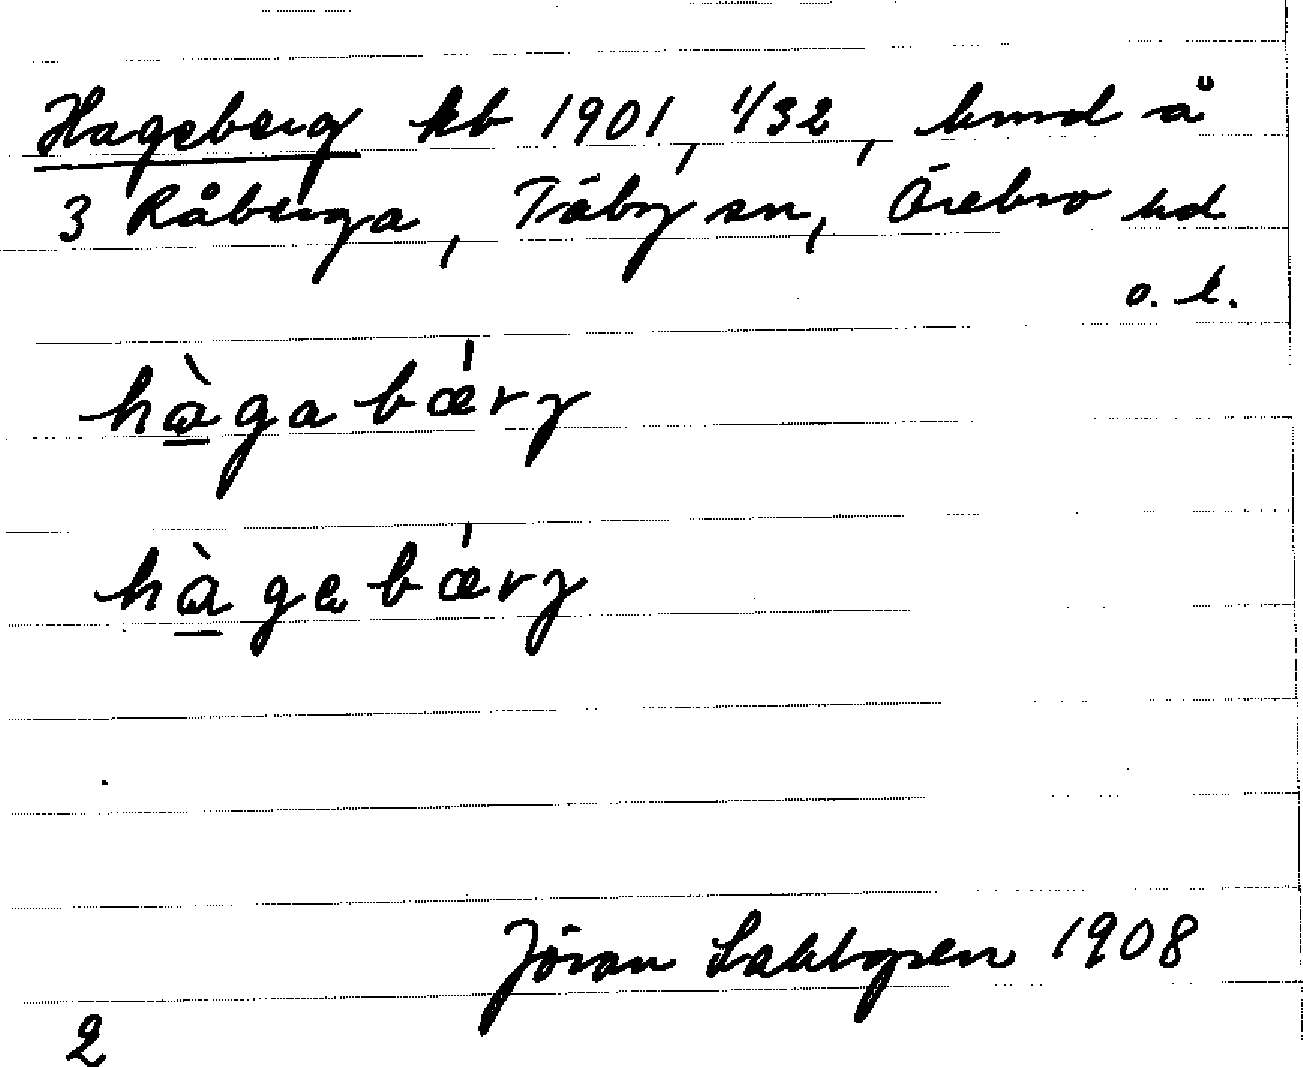 Hageberg kb 1901, 1/32, hmd å
3 Råberga, Täby sn, Örebro hd
o. l.
hàgabǽrg
hàgebǽrg
Jöran Sahlgren 1908
2